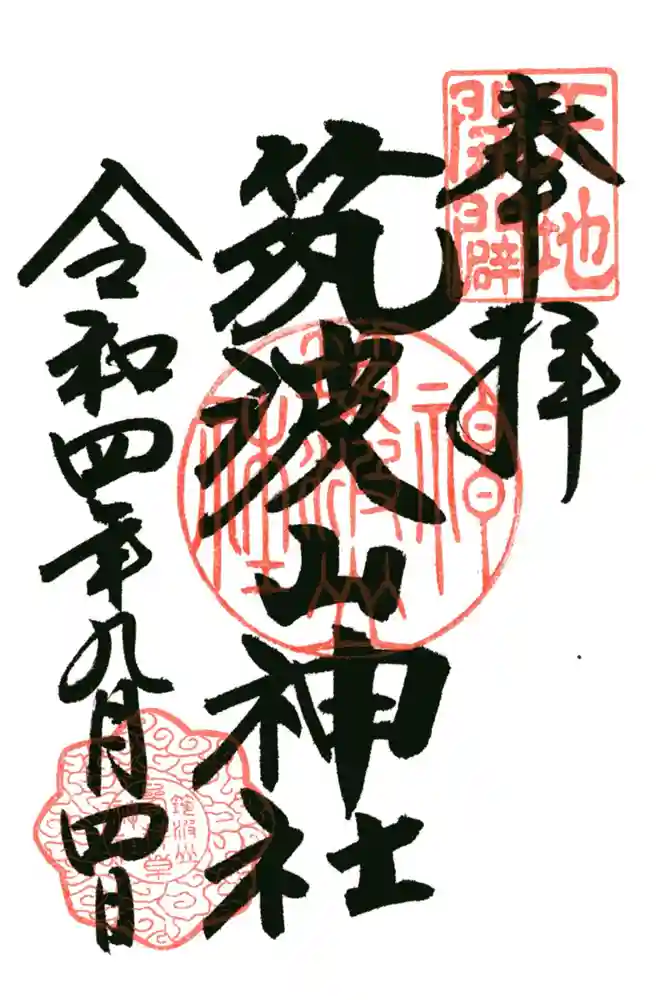 奉拝
天地
開闢
筑波山神社
筑波山
神社
令和四年九月四日
筑波山